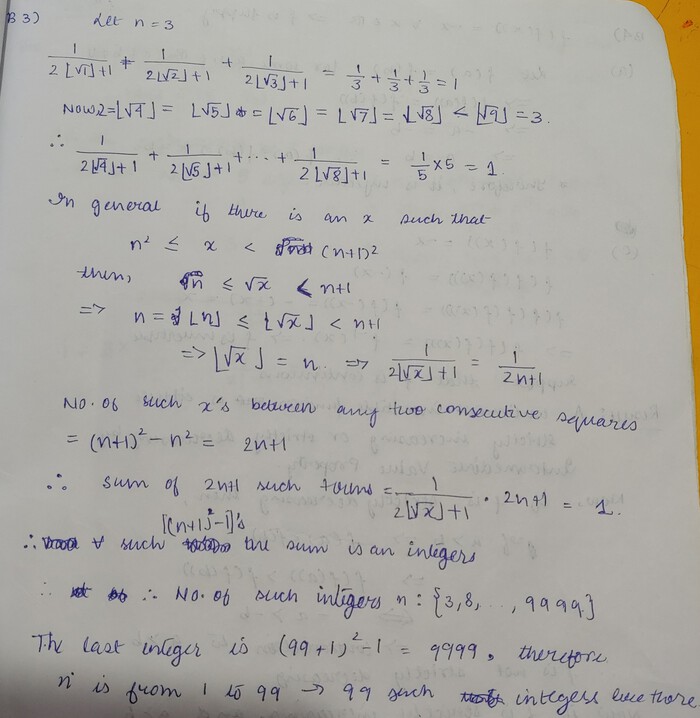 B 3) Let n = 3
1/(2⌊√1⌋+1) + 1/(2⌊√2⌋+1) + 1/(2⌊√3⌋+1) = 1/3 + 1/3 + 1/3 = 1
Now 2 = ⌊√4⌋ = ⌊√5⌋ = ⌊√6⌋ = ⌊√7⌋ = ⌊√8⌋ < ⌊√9⌋ = 3.
∴ 1/(2⌊√4⌋+1) + 1/(2⌊√5⌋+1) + ... + 1/(2⌊√8⌋+1) = 1/5 × 5 = 1.
In general if there is an x such that
n² ≤ x < (n+1)²
then, n ≤ √x < n+1
=> n = ⌊n⌋ ≤ ⌊√x⌋ < n+1
=> ⌊√x⌋ = n. => 1/(2⌊√x⌋+1) = 1/(2n+1)
No. of such x's between any two consecutive squares
= (n+1)² - n² = 2n+1
∴ sum of 2n+1 such terms = 1/(2⌊√x⌋+1) · 2n+1 = 1.
[(n+1)²-1]'s
∴ ∀ such the sum is an integers
∴ ∴ No. of such integers n : {3,8,..., 9999}
The last integer is (99+1)²-1 = 9999. therefore
n is from 1 to 99 → 99 such integers are there